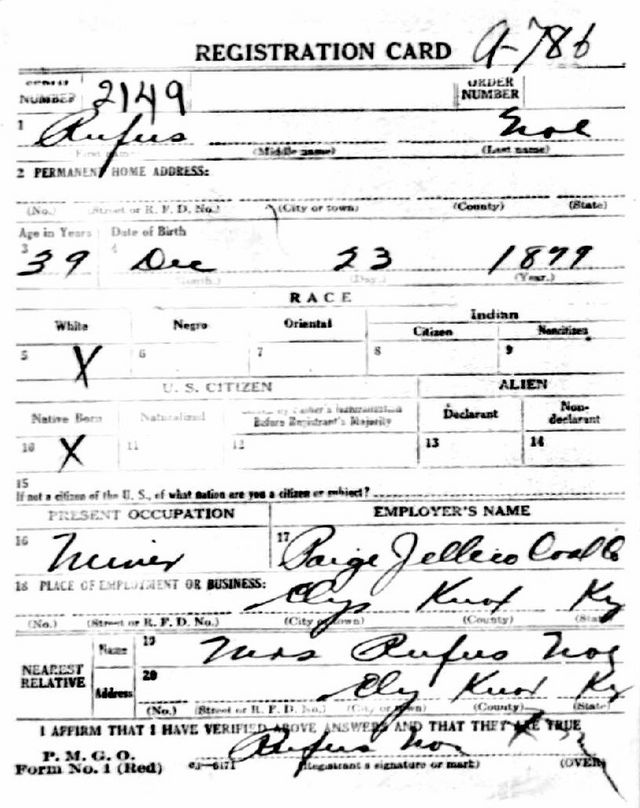 REGISTRATION CARD A-786
SERIAL NUMBER 2149 ORDER NUMBER
1 Rufus Noe
First name (Middle name) (Last name)
2 PERMANENT HOME ADDRESS:
(No.) (Street or R. F. D. No.) (City or town) (County) (State)
Age in Years Date of Birth
3 39 4 Dec 23 1879
(Month.) (Day.) (Year.)
RACE
White Negro Oriental Indian
Citizen Noncitizen
5 X 6 7 8 9
U. S. CITIZEN ALIEN
Native Born Naturalized Citizen by Father's Naturalization Before Registrant's Majority Declarant Non-declarant
10 X 11 12 13 14
15
If not a citizen of the U. S., of what nation are you a citizen or subject?
PRESENT OCCUPATION EMPLOYER'S NAME
16 Miner 17 Paige Jellico Coal Co
18 PLACE OF EMPLOYMENT OR BUSINESS:
Knox Ky
(No.) (Street or R. F. D. No.) (City or town) (County) (State)
NEAREST RELATIVE Name 19 Mrs Rufus Noe
Address 20 Knox Ky
(No.) (Street or R. F. D. No.) (City or town) (County) (State)
I AFFIRM THAT I HAVE VERIFIED ABOVE ANSWERS AND THAT THEY ARE TRUE
P. M. G. O.
Form No. 1 (Red) 03-6171 Rufus Noe
(Registrant's signature or mark) (OVER)